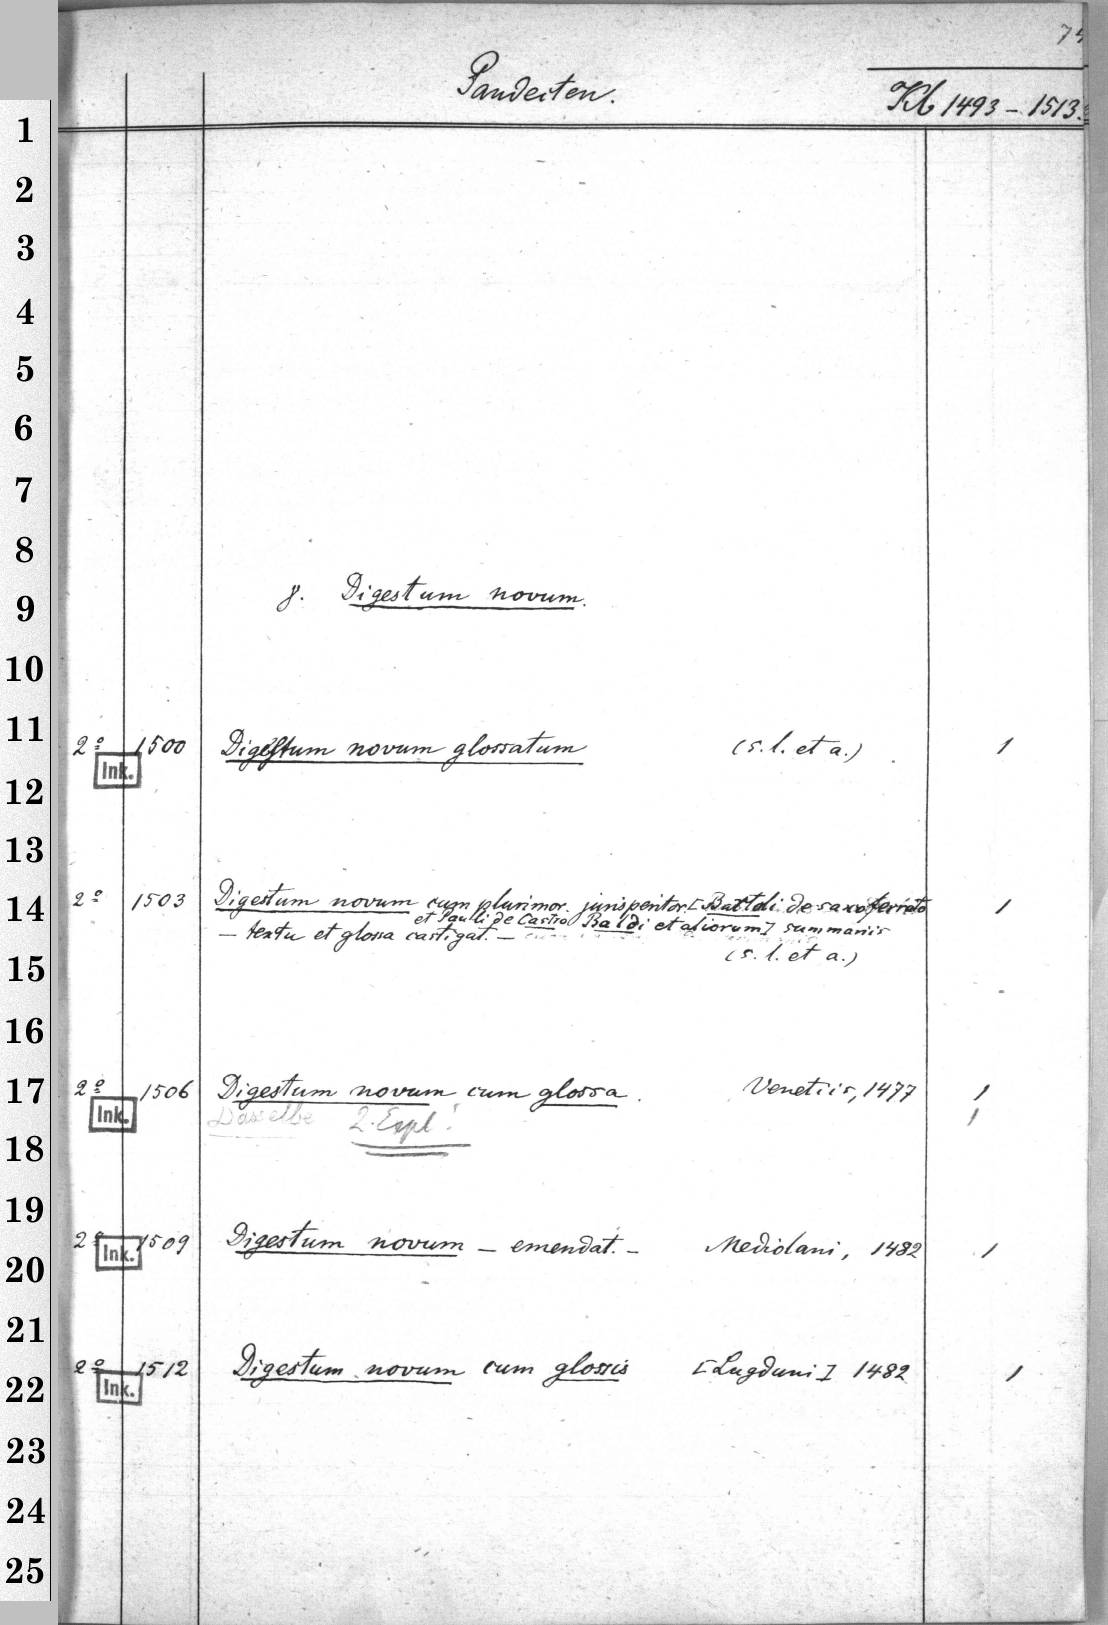 Pandecten.
Kb 1493 - 1513.
1
2
3
4
5
6
7
8
γ. Digestum novum.
9
10
11 2° 1500 Digestum novum glossatum (s. l. et a.) 1
Ink.
12
13
14 2° 1503 Digestum novum cum plurimor. jurisperitor. [Bartoli de saxoferrato 1
et Pauli de Castro Baldi et aliorum] summariis
— textu et glossa castigat. —
(s. l. et a.)
15
16
17 2° 1506 Digestum novum cum glossa. Venetiis, 1477 1
Ink.
Dasselbe 2. Expl! 1
18
19
2° 1509 Digestum novum — emendat. — Mediolani, 1482 1
Ink.
20
21
2° 1512 Digestum novum cum glossis [Lugduni] 1482 1
22 Ink.
23
24
25